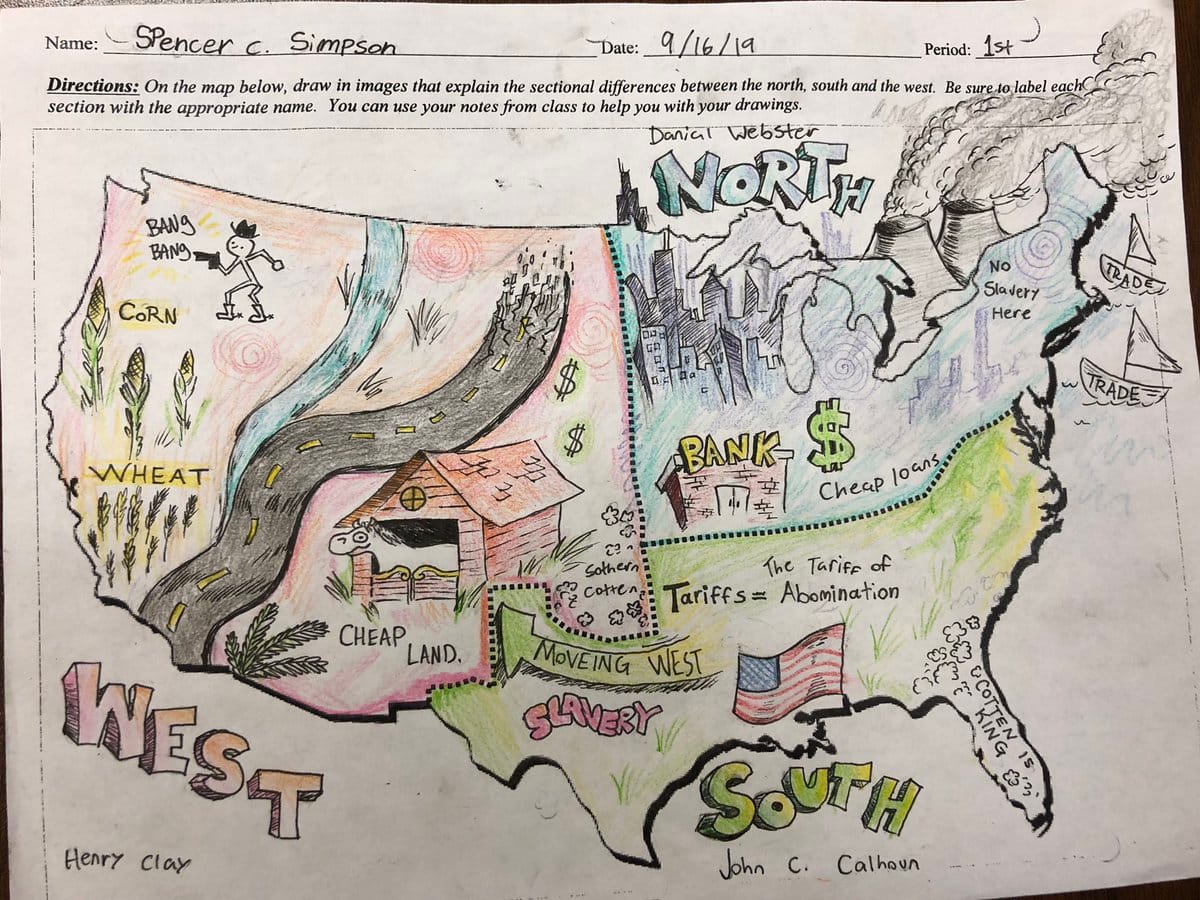 Name: Spencer C. Simpson Date: 9/16/19 Period: 1st
Directions: On the map below, draw in images that explain the sectional differences between the north, south and the west. Be sure to label each
section with the appropriate name. You can use your notes from class to help you with your drawings.
Danial Webster
NORTH
BANG
BANG
CORN
WHEAT
No
Slavery
Here
TRADE
TRADE
$
$
BANK $
Cheap loans
Sothern
Cotten
The Tariff of
Tariffs = Abomination
CHEAP
LAND.
MOVEING WEST
SLAVERY
COTTEN IS
KING
WEST
SOUTH
Henry Clay
John C. Calhoun